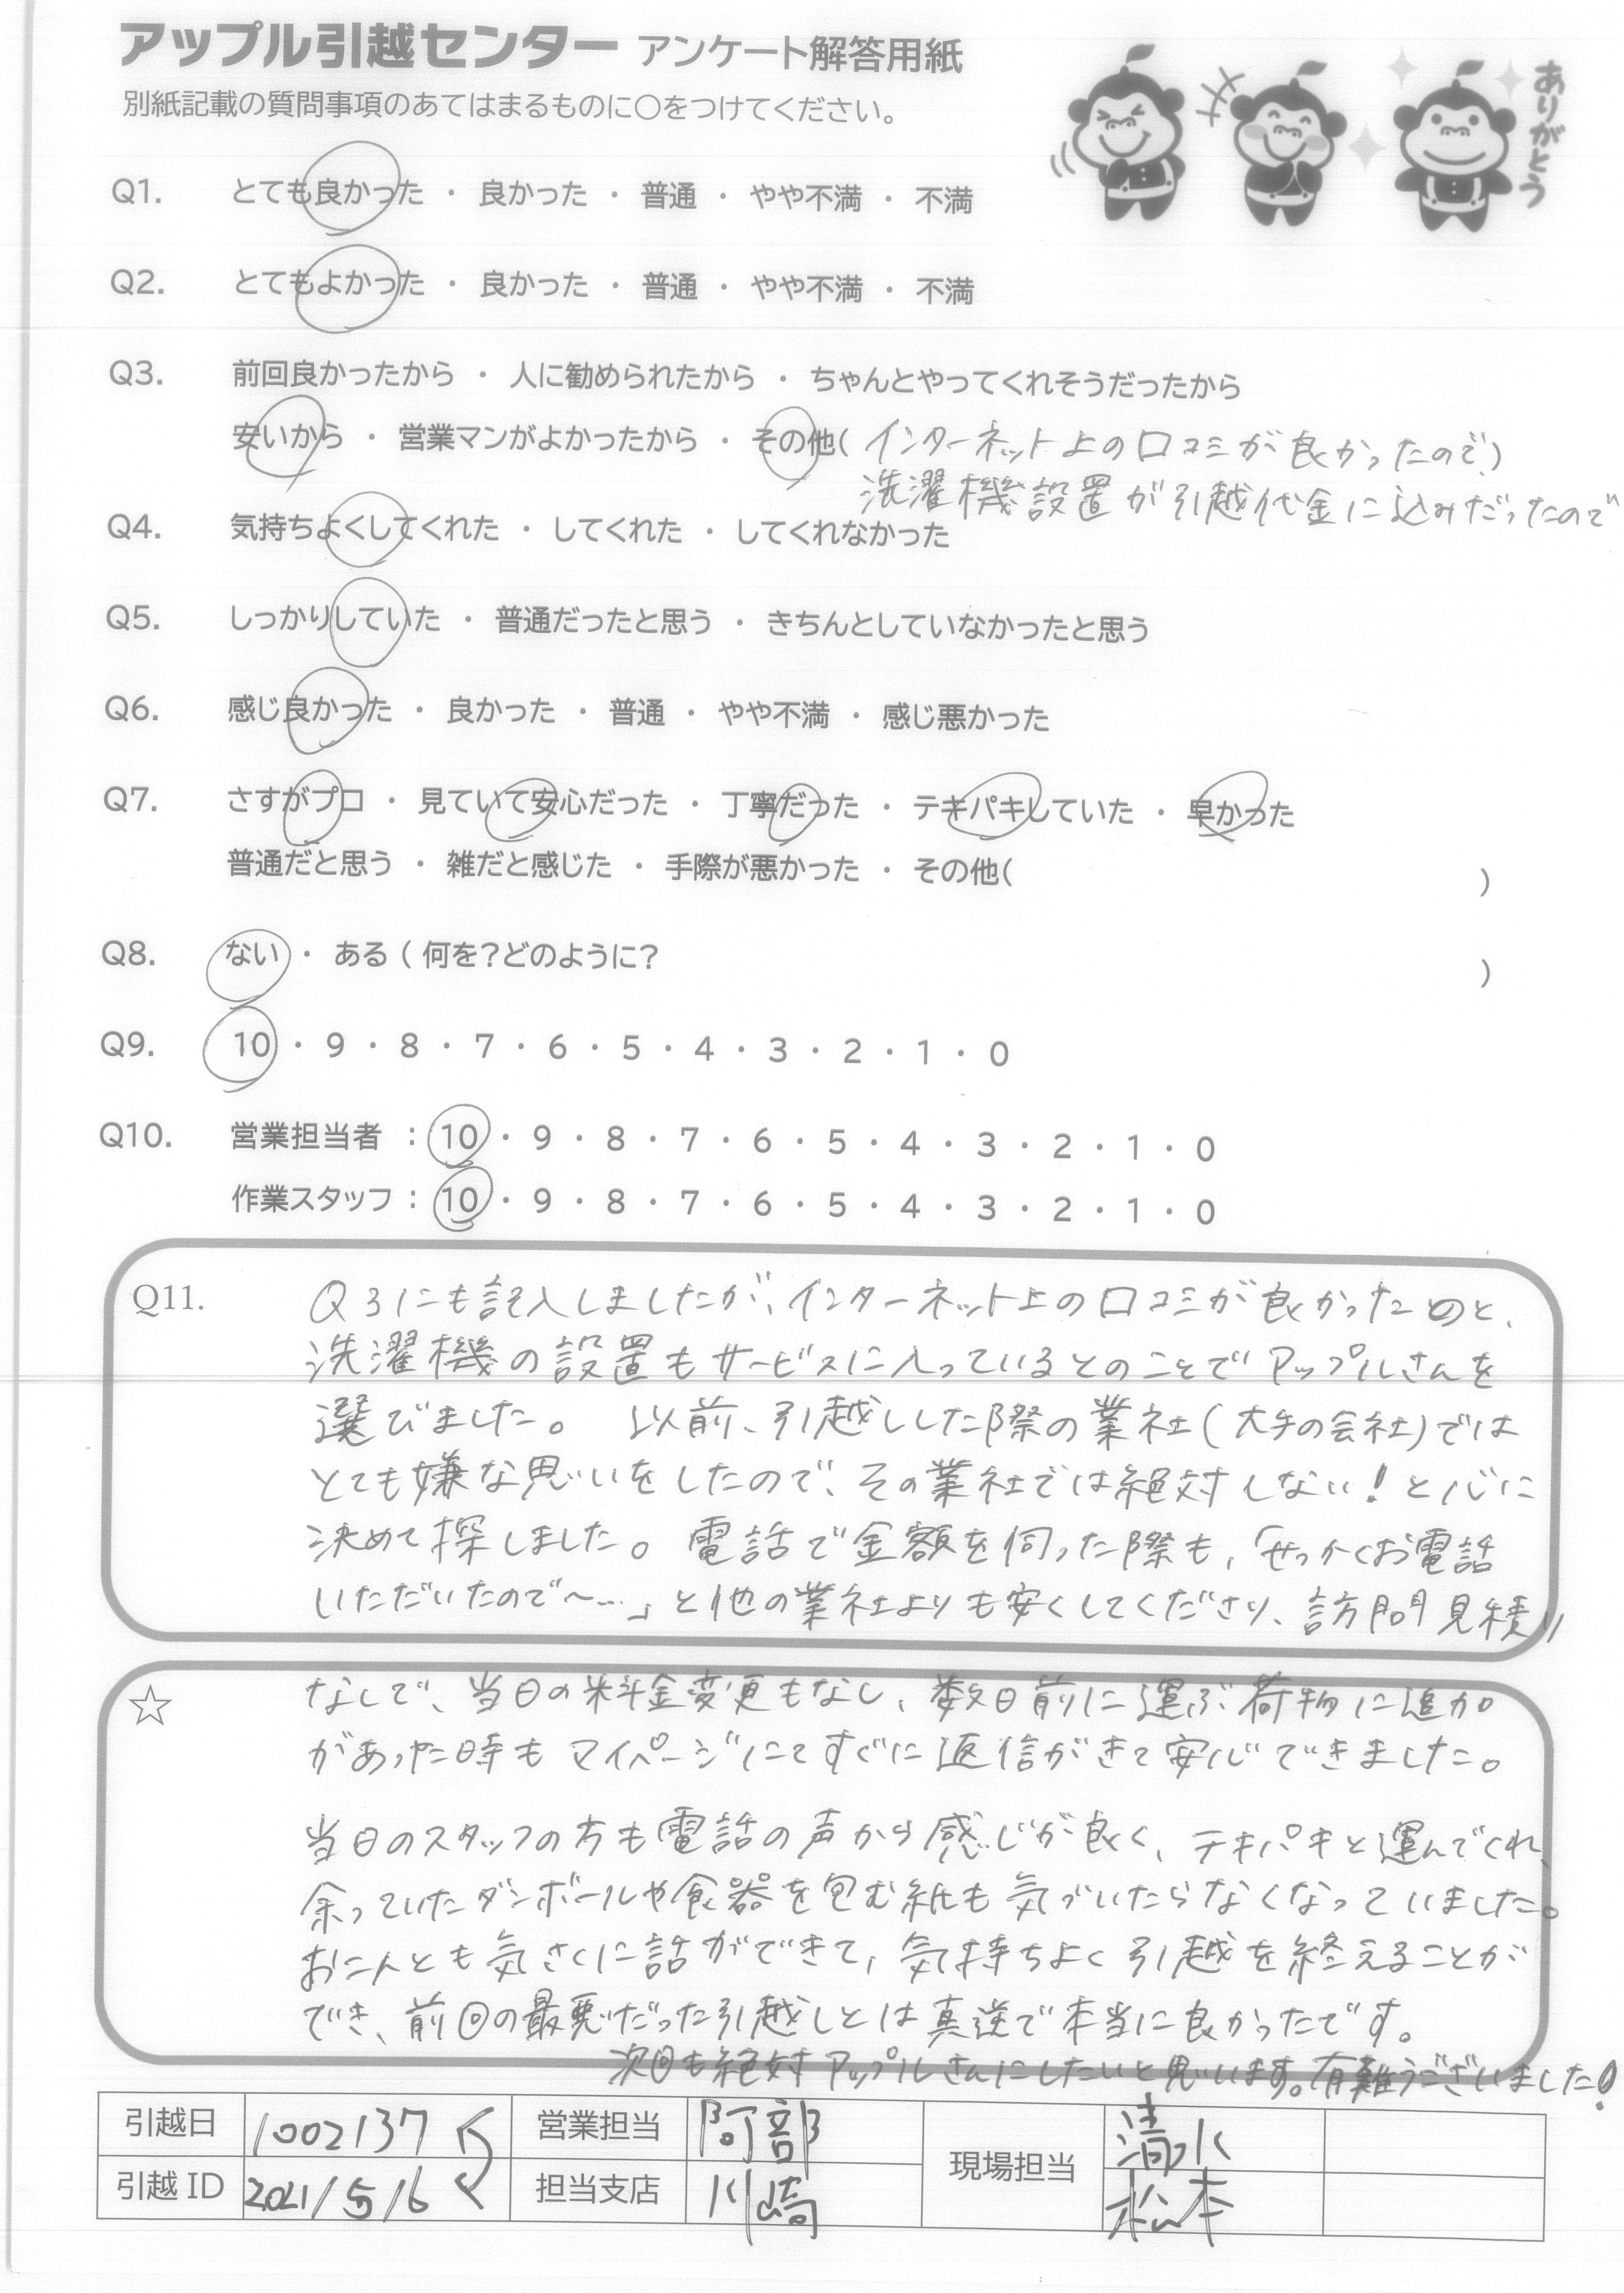 アップル引越センター アンケート解答用紙
別紙記載の質問事項のあてはまるものに○をつけてください。
ありがとう
Q1. とても良かった ・ 良かった ・ 普通 ・ やや不満 ・ 不満
Q2. とてもよかった ・ 良かった ・ 普通 ・ やや不満 ・ 不満
Q3. 前回良かったから ・ 人に勧められたから ・ ちゃんとやってくれそうだったから
安いから ・ 営業マンがよかったから ・ その他( インターネット上の口コミが良かったので)
洗濯機設置が引越代金に込みだったので
Q4. 気持ちよくしてくれた ・ してくれた ・ してくれなかった
Q5. しっかりしていた ・ 普通だったと思う ・ きちんとしていなかったと思う
Q6. 感じ良かった ・ 良かった ・ 普通 ・ やや不満 ・ 感じ悪かった
Q7. さすがプロ ・ 見ていて安心だった ・ 丁寧だった ・ テキパキしていた ・ 早かった
普通だと思う ・ 雑だと感じた ・ 手際が悪かった ・ その他( )
Q8. ない ・ ある ( 何を?どのように? )
Q9. 10 ・ 9 ・ 8 ・ 7 ・ 6 ・ 5 ・ 4 ・ 3 ・ 2 ・ 1 ・ 0
Q10. 営業担当者 : 10 ・ 9 ・ 8 ・ 7 ・ 6 ・ 5 ・ 4 ・ 3 ・ 2 ・ 1 ・ 0
作業スタッフ : 10 ・ 9 ・ 8 ・ 7 ・ 6 ・ 5 ・ 4 ・ 3 ・ 2 ・ 1 ・ 0
Q11. Q3にも記入しましたが、インターネット上の口コミが良かったのと、
洗濯機の設置もサービスに入っているとのことでアップルさんを
選びました。 以前、引越しした際の業社(大手の会社)では
とても嫌な思いをしたので、その業社では絶対しない!と心に
決めて探しました。電話で金額を伺った際も、「せっかくお電話
いただいたので〜…」と他の業社よりも安くしてくださり、訪問見積り
☆ なしで、当日の料金変更もなし、数日前に運ぶ荷物に追加
があった時もマイページにてすぐに返信がきて安心できました。
当日のスタッフの方も電話の声から感じが良く、テキパキと運んでくれ、
余っていたダンボールや食器を包む紙も気づいたらなくなっていました。
お二人とも気さくに話ができて、気持ちよく引越を終えることが
でき、前回の最悪だった引越しとは真逆で本当に良かったです。
次回も絶対アップルさんにしたいと思います。有難うございました!
引越日 1002137 営業担当 阿部 現場担当 清水
引越 ID 2021/5/6 担当支店 川崎 松本